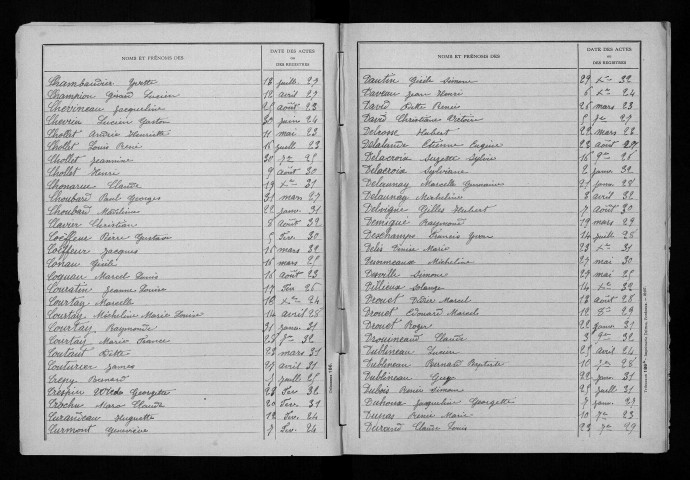 NOMS ET PRÉNOMS DES
DATE DES ACTES
OU
DES REGISTRES
Chambaudier Yvette 13 juill. 27
Champion Lucien 12 avril 27
Chevineau Jacqueline 25 août 23
Chevrin Lucien Gaston 30 juin 24
Chollet Andrée Henriette 11 mai 23
Chollet Louis René 15 juill. 23
Chollet Jeannine 30 7re 25
Chollet Henri 9 août 30
Claude 19 Xre 31
Choubard Paul Georges 31 mars 27
Choubard Marlène 22 janv. 31
Clavier Christian 8 août 32
Coëffeur Pierre Gustave 5 Fév. 30
Coëffeur Jacques 15 mars 32
Conau 16 mars 25
Coquau Marcel Louis 16 août 23
Couratin Jeanne Louise 17 Fév. 26
Courtay Marcelle 10 Xre 24
Courtay Micheline Marie Louise 14 avril 28
Courtay Raymonde 31 janv. 31
Courtay Marie France 23 7re 32
Coutant 23 mars 31
Couturier James 27 avril 31
Creny Bernard 1 juill. 25
Crespin Georgette 23 Fév. 32
Claude 20 Fév. 31
Curaudeau Huguette 12 Fév. 24
Curmont Geneviève 7 Fév. 24
NOMS ET PRÉNOMS DES
DATE DES ACTES
OU
DES REGISTRES
Dautin Simone 29 Xre 32
Daveau Jean Henri 5 Xre 24
David Renée 26 mars 23
David Christiane 5 7re 27
Delcosse Hubert 22 mars 23
Delalande Etienne Eugène 23 août 27
Delacroix Suzette Sylvie 16 9re 26
Delacroix Sylviane 2 janv. 31
Delaunay Marcelle Germaine 21 janv. 28
Delaunay Micheline 8 avril 32
Delvigne Gilles Hubert 7 août 30
Raymond 19 mars 23
Deschamps Francis Yvon 14 juill. 28
Marie 23 Xre 31
Micheline 27 mai 30
Simone 29 mai 25
Dillieux Solange 14 Xre 32
Drouet Didier Marcel 13 août 28
Drouet Edouard Marcel 19 29
Drouet Roger 26 janv. 31
Drouineaud Claude 3 9re 32
Dublineau Lucien 27 avril 24
Dublineau Bernard Baptiste 10 7re 28
Dublineau Guy 22 janv. 31
Dubois Renée Simone 25 juill. 31
Duhoux Jacqueline Georgette 7 janv. 27
Dupas Renée Marie 10 7re 23
Durand Claude Louis 23 7re 29